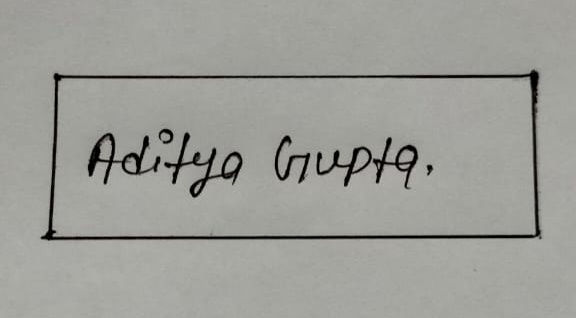 Aditya Gupta.